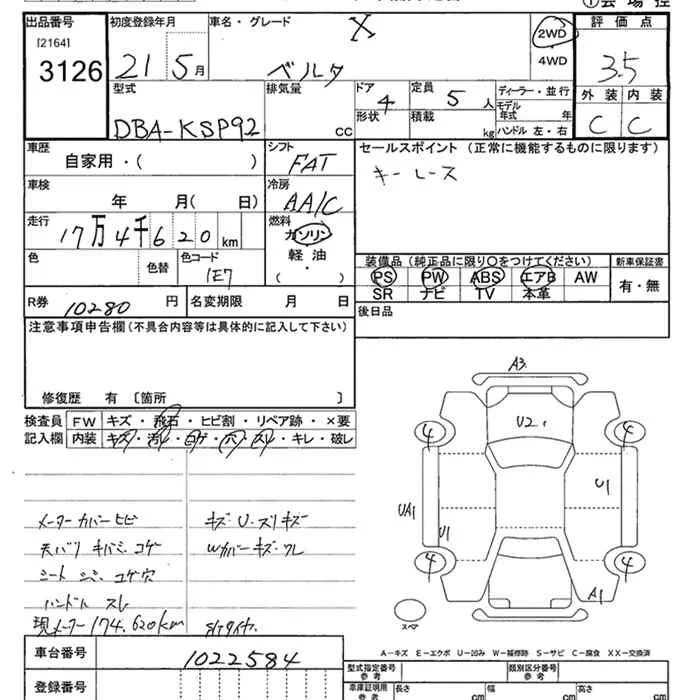 ①会 場 控
出品番号 初度登録年月 車名・グレード X 2WD 評 価 点
[2164]
3126 21 5月 ベルタ 4WD 3.5
型式 排気量 ドア 4 定員 5 人 ディーラー・並行 外 装 内 装
DBA-KSP92 CC 形状 積載 kg モデル年式 年 C C
ハンドル 左・右
車歴 シフト セールスポイント (正常に機能するものに限ります)
自家用・( ) FAT キーレース
車検 冷房
年 月( 日) AA/C
走行 燃料
17万4千620km ガソリン
色 色替 色コード 軽 油
1E7 ・ ( )
装備品(純正品に限り○をつけてください) 新車保証書
PS PW ABS エアB AW 有・無
SR ナビ TV 本革
R券 10280 円 名変期限 月 日 後日品
注意事項申告欄(不具合内容等は具体的に記入して下さい)
修復歴 有 〔箇所 〕
検査員 FW キズ・飛石・ヒビ割・リペア跡・×要
記入欄 内装 キズ・汚レ・コゲ・穴・スレ・キレ・破レ
A3
U2
4 4
UA1 U1 U1
4 4
A1
スペア
メーターカバーヒビ キズ・U・スリキズ
天バリ キバミ・コゲ Wカバーキズ・ワレ
シート シミ コゲ穴
ハンドル スレ
現メーター174,620km
A―キズ E―エクボ U―凹み W―補修跡 S―サビ C―腐食 XX―交換済
車台番号 1022584
型式指定番号 参考 類別区分番号 参考
登録番号 車庫証明用 参考 長さ cm 幅 cm 高さ cm